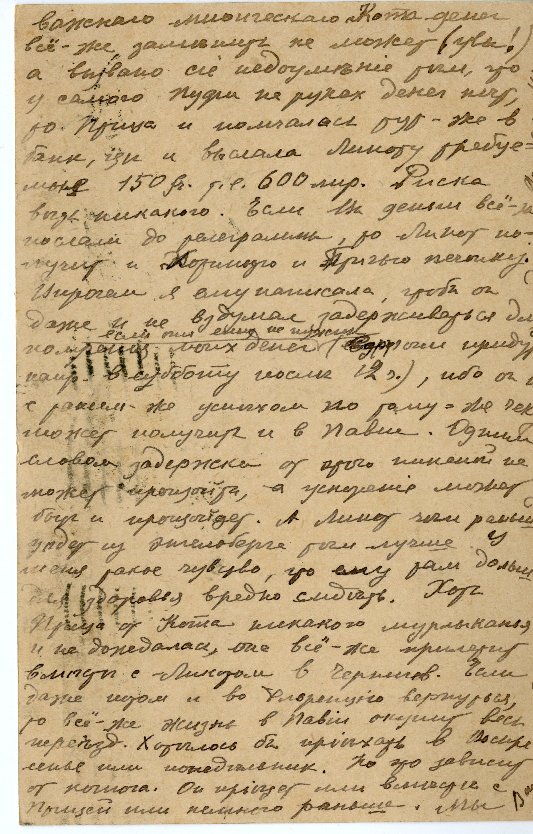 важнаго мионческаго Кота денег
всё-же, заменить не может (увы!)
а вызвано сiе недоумѣнiе тем, что
у самого Пуфи на руках денег нет,
то Птица и помчалась тут-же в
банк, где и выслала Линоту требуе-
мые 150 фр. т.е. 600 лир. Риска
ведь никакого. Если Вы деньги всё-
послали до телеграммы, то Линот по-
лучит и Котиную и Птичью
я ему написала, чтоб он
даже и не вздумал задерживаться для
если они ещё не пришли
моих денег ( придут
напр. в субботу после 12 ч.), ибо он
с таким-же успехом по тому-же чек
может получить и в Павии. Одним
словом задержки от этого никакой не
может произойти, а ускоренiе может
быть и произойдет. А Линот чем раньш
уедет из тем лучше. У
меня такое чувство, что ему там дольше
для здоровья вредно сидеть. Хоть
Птица от Кота никакого мурлыканья
и не дождалась, она всё-же прилетит
вместе с Линотом в . Если
даже потом и во Флоренцiю вернуться,
то всё-же жизнь в Павии окупит весь
переезд. Хотелось бы прiехать в Воскре
сенье или понедельник. Но это зависит
от . Он прiедет или вместе с
Птицей или немного раньше. Мы